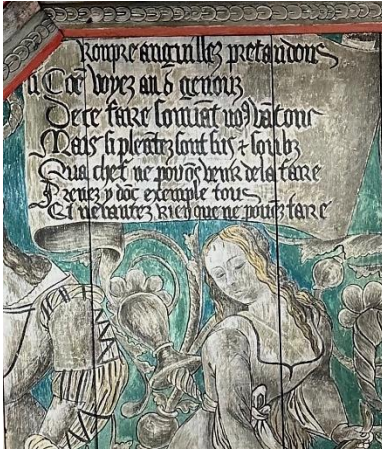 Ronpre anguillez pretandons
Coē voyez au genouz
De ce faire souvāt noꝰ batons
Mais si plentez sont sus ⁊ soubz
Qua chef ne povōs venir de la faire
Prenez y dōc exemple tous
Et ne tantez rien que ne pouez faire